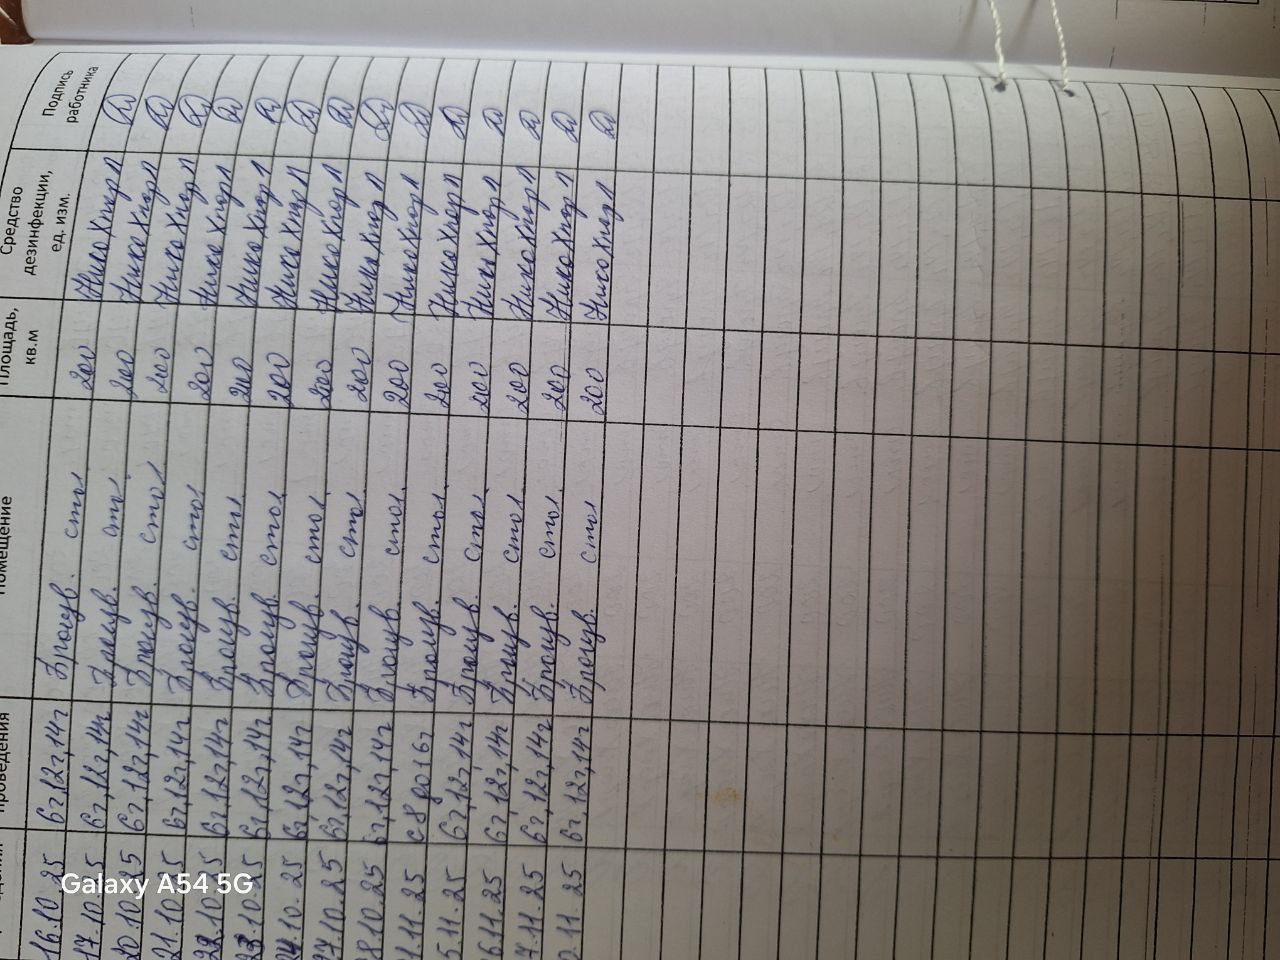 проведения Помещение Площадь, кв.м Средство дезинфекции, ед. изм. Подпись работника
16.10.25 6ч,12ч,14ч Произв. стол 200 Нико Хлор Л
17.10.25 6ч,12ч,14ч Произв. стол 200 Нико Хлор Л
20.10.25 6ч,12ч,14ч Произв. стол 200 Нико Хлор Л
21.10.25 6ч,12ч,14ч Произв. стол 200 Нико Хлор Л
22.10.25 6ч,12ч,14ч Произв. стол. 200 Нико Хлор Л
23.10.25 6ч,12ч,14ч Произв. стол 200 Нико Хлор Л
24.10.25 6ч,12ч,14ч Произв. стол. 200 Нико Хлор Л
27.10.25 6ч,12ч,14ч Произв. стол 200 Нико Хлор Л
8.10.25 6ч,12ч,14ч Произв. стол. 200 Нико Хлор Л
1.11.25 с 8 до 16ч Произв. стол. 200 Нико Хлор Л
5.11.25 6ч,12ч,14ч Произв. стол. 200 Нико Хлор Л
6.11.25 6ч,12ч,14ч Произв. стол 200 Нико Хлор Л
7.11.25 6ч,12ч,14ч Произв. стол. 200 Нико Хлор Л
.11.25 6ч,12ч,14ч Произв. стол 200 Нико Хлор Л
Galaxy A54 5G